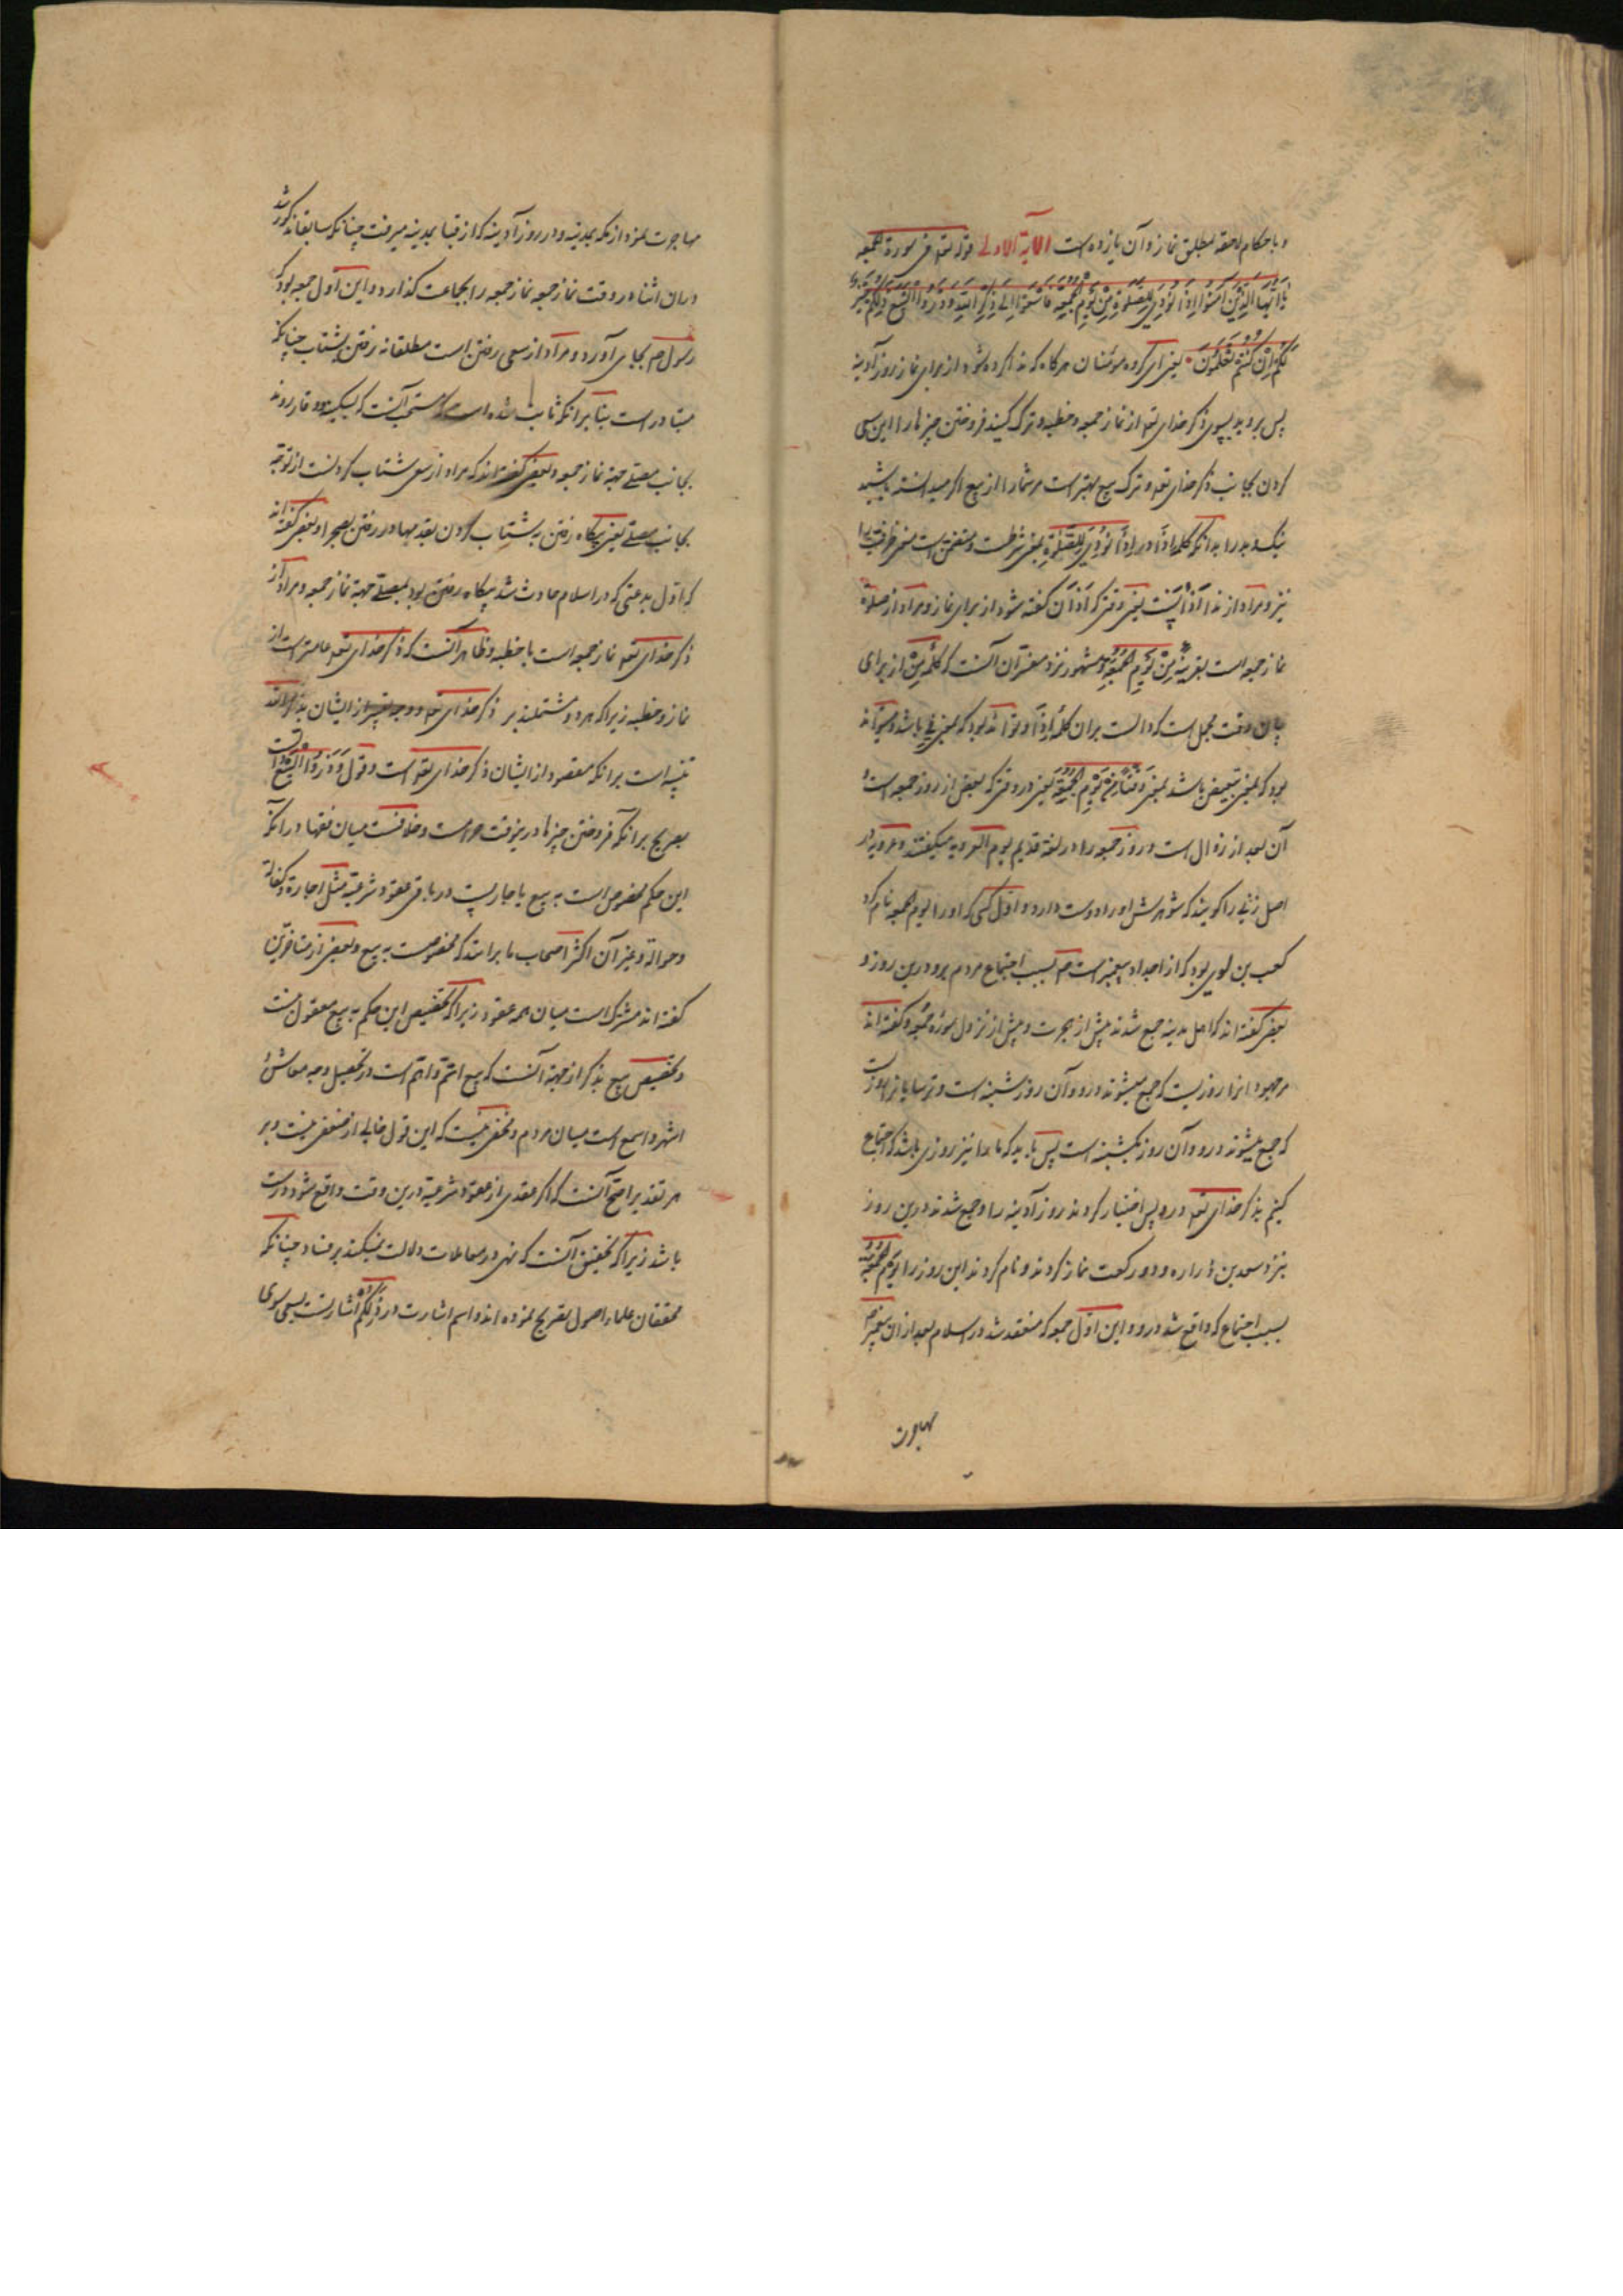 و باحکام لاحقه بمطلق نماز و آن یازده است الآیة الاولی قوله تعه فی سورة الجمعه
یَا أَیُّهَا الَّذِینَ آمَنُوا إِذَا نُودِیَ لِلصَّلٰوةِ مِنْ یَوْمِ الْجُمُعَةِ فَاسْعَوْا إِلَی ذِکْرِ اللَّهِ وَذَرُوا الْبَیْعَ ذٰلِکُمْ خَیْرٌ
لَکُمْ إِنْ کُنْتُمْ تَعْلَمُونَ یعنی ای گروه مؤمنان هرگاه که ندا کرده شود از برای نماز روز آدینه
پس بروید بسوی ذکر خدای تعه از نماز جمعه و خطبه و ترک کنید فروختن چیزها را این سعی
کردن بجانب ذکر خدای تعه و ترک بیع بهتر است مر شما را از بیع اگر میدانسته باشید
نیک و بد را بدانکه کلمه إذا در إِذَا نُودِیَ لِلصَّلٰوةِ بمعنی شرطست و متضمن است معنی ظرفیت را
نیز و مراد از ندا اذانست یعنی وقتی که اذان گفته شود از برای نماز و مراد از صلوة
نماز جمعه است بقرینه مِنْ یَوْمِ الْجُمُعَةِ و مشهور نزد مفسران آنست که کلمه مِن از برای
بیان وقت مجمل است که دالست بران کلمه إذا و تواند بود که بمعنی فی باشد و میتواند
بود که بمعنی تبعیض باشد بمعنی وقتا من یوم الجمعة یعنی در وقتی که بعض از روز جمعه است و
آن بعد از زوال است و روز جمعه را در لغة قدیم یوم العروبه میگفتند و عروبه در
اصل زنی را گویند که شوهرش او را دوست دارد و اول کسی که او را یوم الجمعه نام کرد
کعب بن لوی بود که از اجداد پیغمبر است صم بسبب اجتماع مردم برو درین روز و
بعضی گفته اند که اهل مدینه جمع شدند پیش از هجرت و پیش از نزول سورۀ جمعه و گفته اند
مر جهودانرا روزیست که جمع میشوند درو و آن روز شنبه است و ترسایانرا روزیست
که جمع میشوند درو و آن روز یکشنبه است پس باید که ما را نیز روزی باشد که اجتماع
کنیم بذکر خدای تعه درو پس اختیار کردند روز آدینه را و جمع شدند درین روز
نزد سعد بن زراره و دو رکعت نماز کردند و نام کردند این روز را یَوْمُ الْجُمُعَةِ
بسبب اجتماع که واقع شد درو و این اول جمعه که منعقد شد در اسلام بعد ازان پیغمبر صم
مهاجرت
مهاجرت نمود از مکه بمدینه و در روز آدینه که از قبا بمدینه میرفت چنانکه سابقا مذکور شد
دران اثنا در وقت نماز جمعه نماز جمعه را بجماعت گذارد و این اول جمعه بود که
رسول صم بجای آورد و مراد از سعی رفتن است مطلقا نه رفتن بشتاب چنانکه
متبادر است بنا برانکه ثابت شده است که مستحب آنست که بسکینه و وقار روند
بجانب مصلی جهة نماز جمعه و بعضی گفته اند که مراد از سعی شتاب کردنست از توجه
بجانب مصلی یعنی پگاه رفتن نه شتاب کردن بقدمها در رفتن بصحرا و بعضی گفته اند
که اول بدعتی که در اسلام حادث شد پگاه رفتن بود بمصلی جهة نماز جمعه و مراد از
ذکر خدای تعه نماز جمعه است با خطبه و ظاهر آنست که ذکر خدای تعه عامتر است از
نماز و خطبه زیرا که هر دو مشتملند بر ذکر خدای تعه و وجه تعبیر از ایشان بذکر الله
تنبیه است برانکه مقصود از ایشان ذکر خدای تعه است و قول وَذَرُوا الْبَیْعَ
تصریح برانکه فروختن چیزها درینوقت حرامست و خلافست میان فقها درانکه
این حکم مخصوص است به بیع یا جاریست در باقی عقود شرعیة مثل اجارة و کفالة
و حوالة و غیر آن اکثر اصحاب ما برانند که مخصوصست به بیع و بعضی از متاخرین
گفته اند مشترک است میان همه عقود زیرا که تخصیص این حکم به بیع معقول نیست
و تخصیص بیع بذکر از جهة آنست که بیع اتم و اهم است در تحصیل وجه معاش و
اشهر و اسمع است میان مردم و مخفی نیست که این قول خالی از ضعفی نیست و بر
هر تقدیر اصح آنست که اگر عقدی از عقود شرعیة درین وقت واقع شود درست
باشد زیرا که تحقیق آنست که نهی در معاملات دلالت نمیکند بر فساد چنانکه
محققان علماء اصول تصریح نموده اند و اسم اشارت در ذٰلِکُمْ اشارتست بسعی بسوی